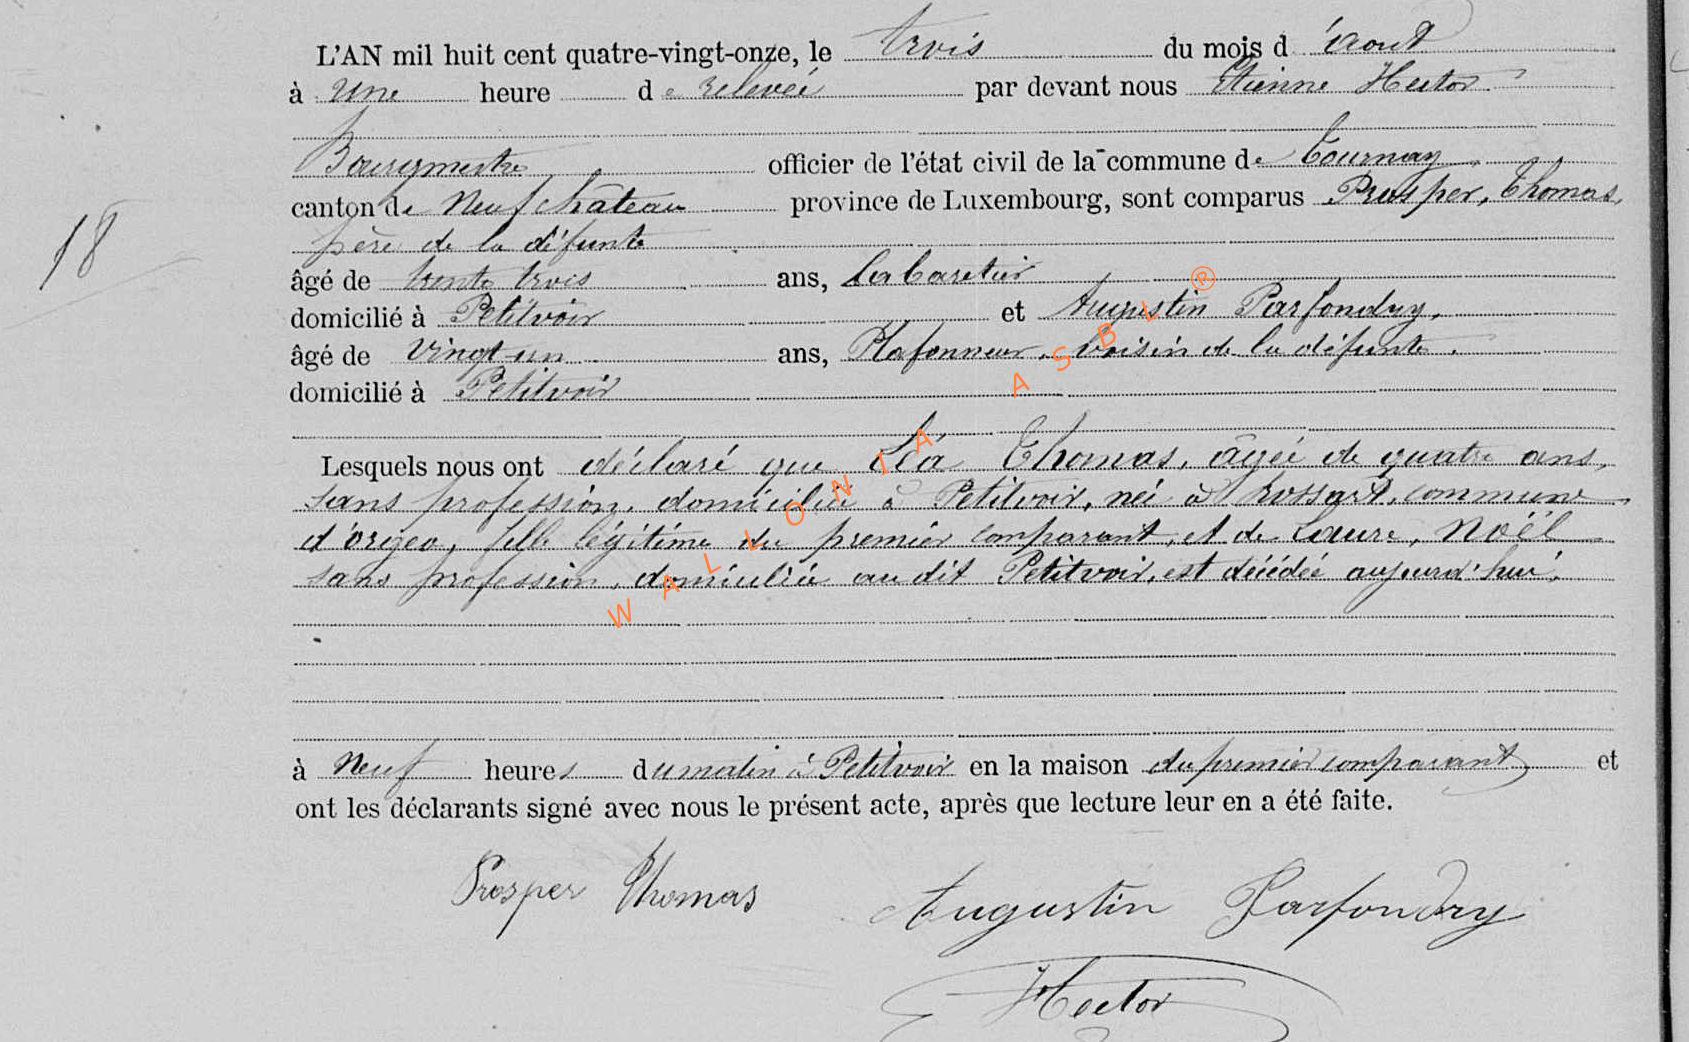 L'AN mil huit cent quatre-vingt-onze, le trois du mois d'août
à une heure de relevée par devant nous Etienne Hector
Bourgmestre officier de l'état civil de la commune de Tournay
canton de Neufchâteau province de Luxembourg, sont comparus Prosper, Thomas,
père de la défunte
18
âgé de trente trois ans, Cabaretier
domicilié à Petitvoir et Augustin Parfondry,
âgé de vingt-un ans, Plafonneur, voisin de la défunte.
domicilié à Petitvoir
Lesquels nous ont déclaré que Léa Thomas, âgée de quatre ans,
sans profession, domiciliée à Petitvoir, née à Rossart, commune
d'orgeo, fille légitime du premier comparant, et de Laure, Noël
sans profession, domiciliée au dit Petitvoir, est décédée aujourd'hui,
à neuf heures du matin à Petitvoir en la maison du premier comparant et
ont les déclarants signé avec nous le présent acte, après que lecture leur en a été faite.
Prosper Thomas Augustin Parfondry
Hector
WALLONIA ASBL ®